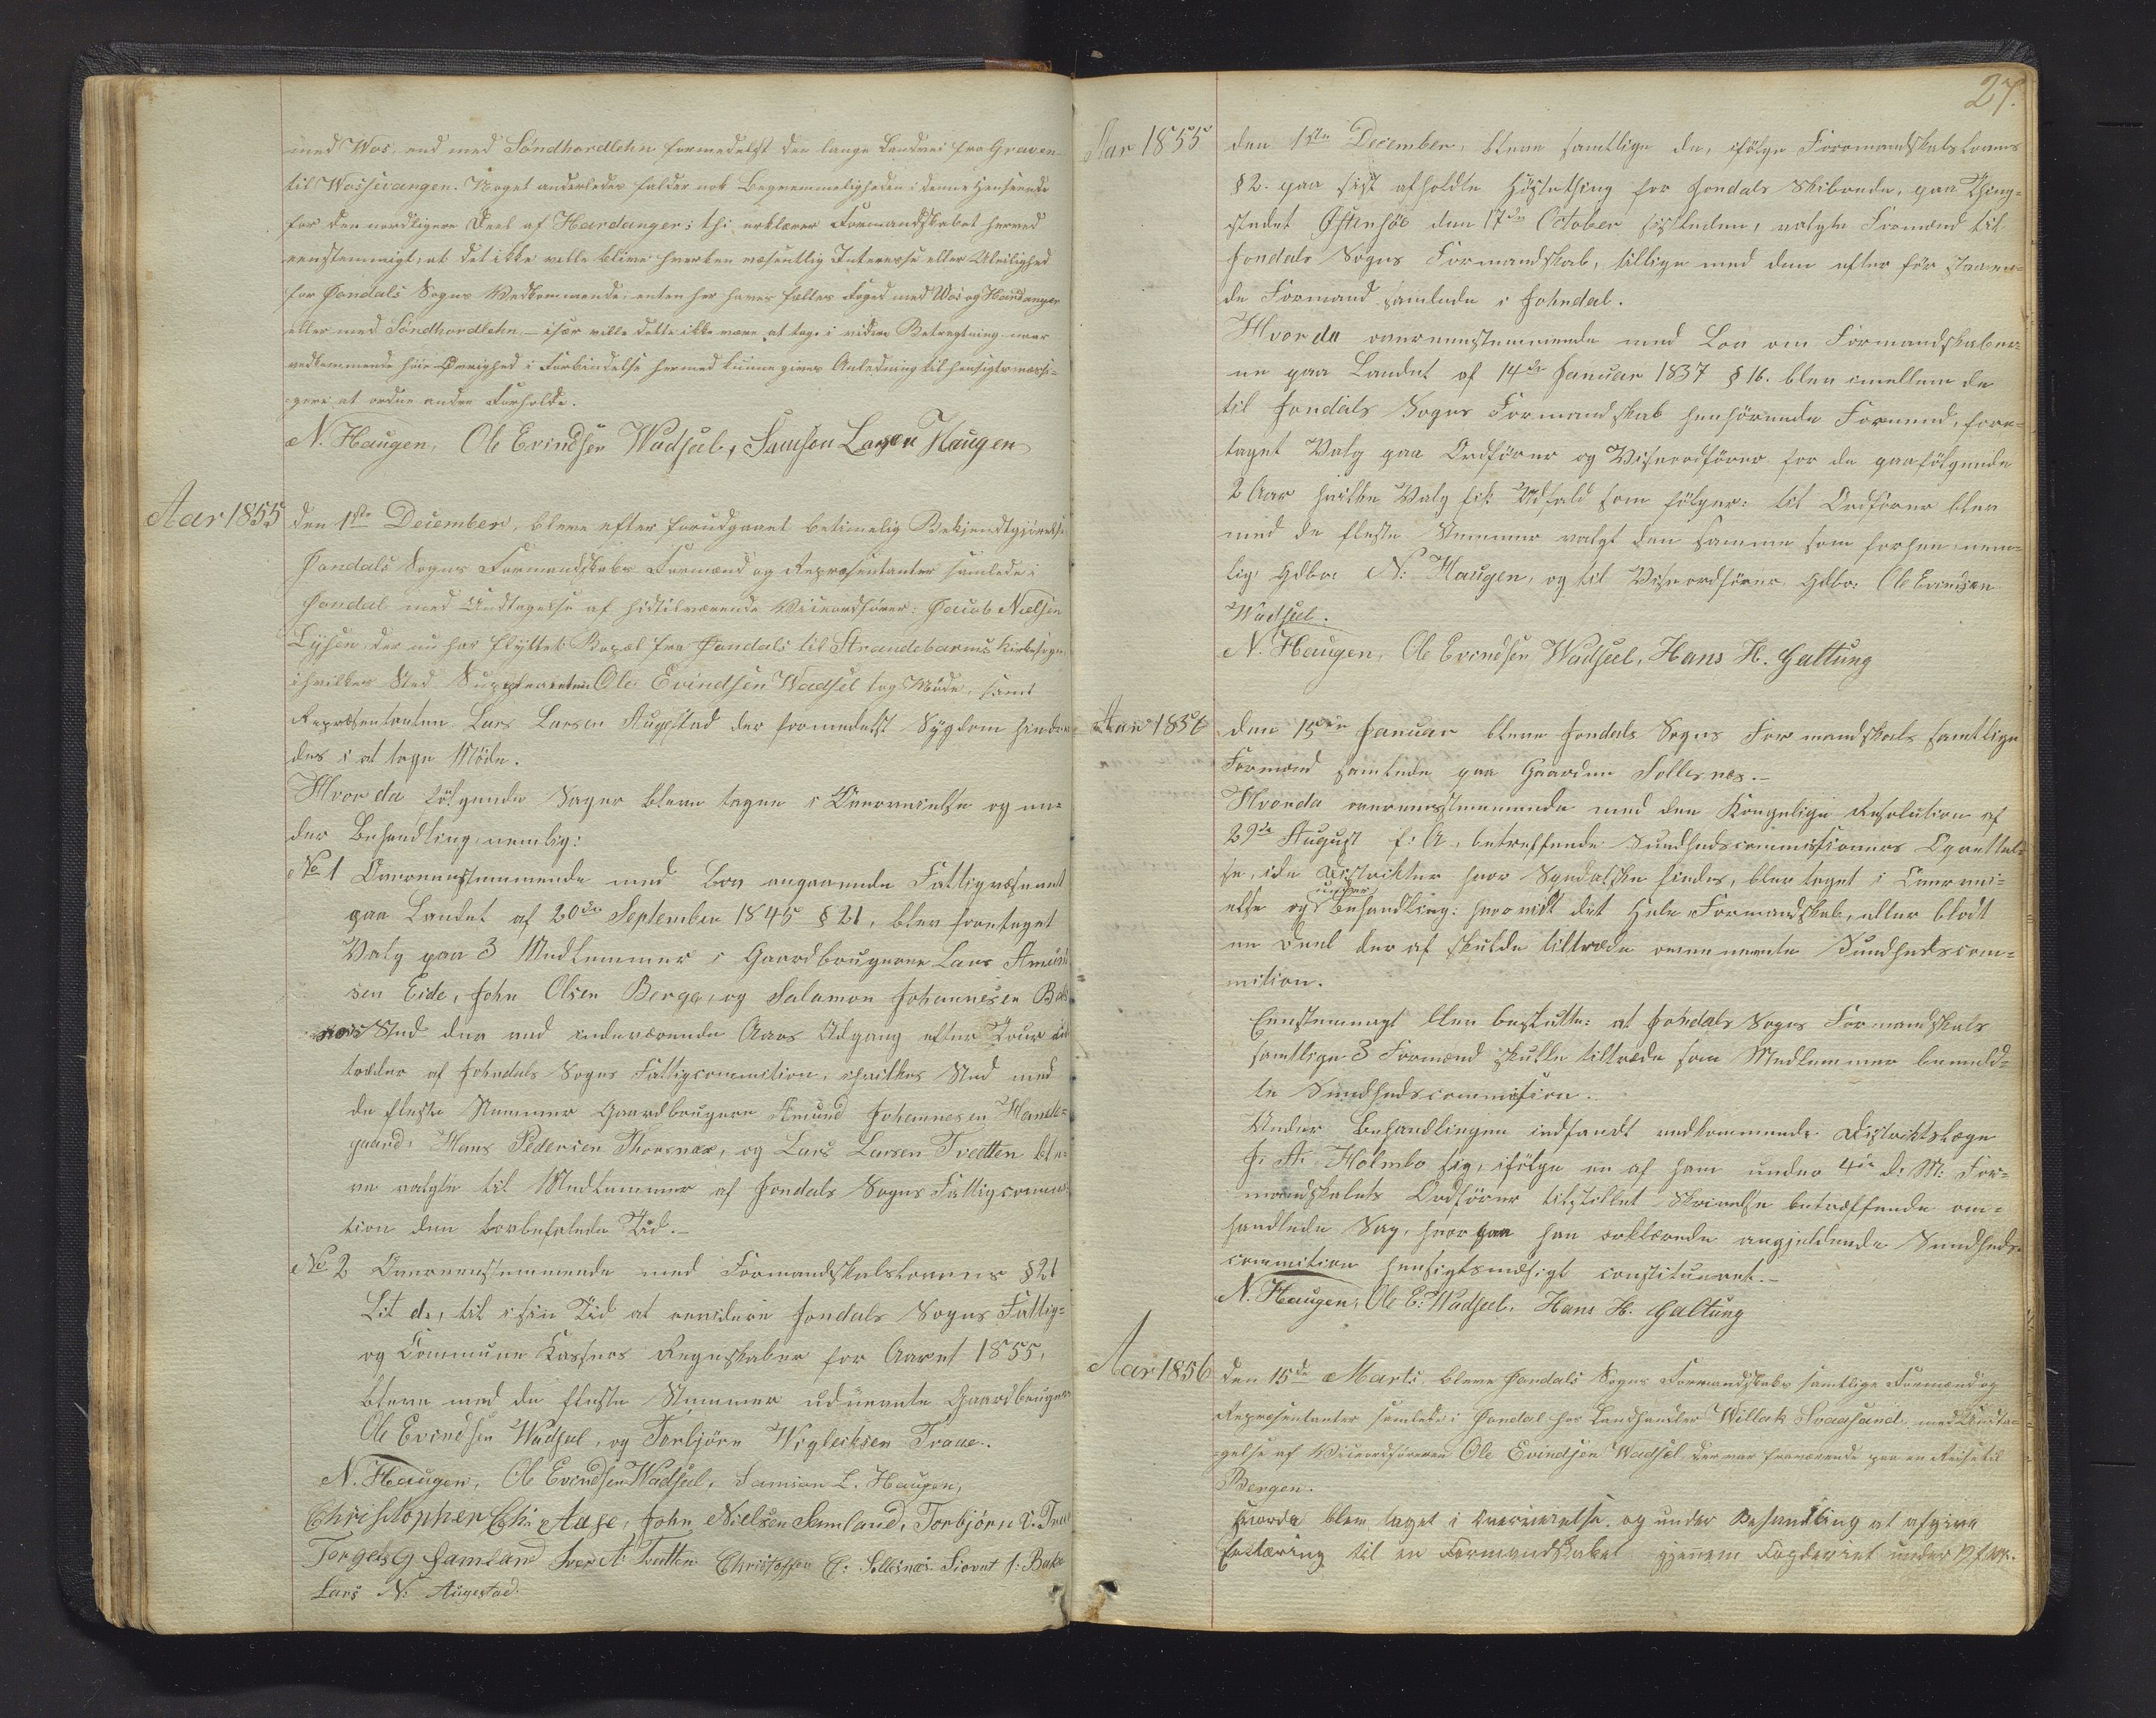 med Wos, end med Söndhordlehn formedelst den lange Landvei fra Graven
til Wossevangen. Noget anderledes falder nok Beqvemmeligheden i denne Henseende
for den nordligere Deel af Hardanger; thi erklærer Formandskabet herved
eenstemmigt, at det ikke vilde blive hverken væsentlig Interesse eller Uleilighed
for Jondals Sogns Vedkommende, enten her haves fælles Foged med Wos og Hardanger
eller med Söndhordlehn, – især ville dette ikke være at tage i videre Betragtning naar
vedkommende høie Øvrighed i Forbindelse hermed kunne gives Anledning til hensigtsmæssi-
gere at ordne andre Forholde.
N. Haugen, Ole Evindsen Wadsel, Samson Larsen Haugen
Aar 1855 den 1ste December, bleve efter forudgaaet betimelig Bekjendtgjørelse
Jondals Sogns Formandskabs Formænd og Repræsentanter samlede i
Jondal med Undtagelse af hidtilværende Viceordfører: Jacob Nielsen
Lyhsen, der nu har flyttet Bopæl fra Jondals til Strandebarms Kirkesogn,
i hvilkes Sted Suppleanten Ole Evindsen Wadsel tog Møde, samt
Repræsentanten Lars Larsen Augestad der formedelst Sygdom hindre-
des i at tage Møde.
Hvor da følgende Sager bleve tagne i Overveielse og un-
der Behandling, nemlig:
No 1 Overeenstemmende med Lov angaaende Fattigvæsenet
paa Landet af 20de September 1845 § 21, blev foretaget
Valg paa 3 Medlemmer i Gaardbrugerne Lars Amund
sen Eide, John Olsen Berge, og Salamon Johannesen
Sted der ved indeværende Aars Udgang efter Tour ud
træder af Johndals Sogns Fattigcommition, i hvilkes Sted med
de fleste Stemmer Gaardbrugerne Amund Johannesen Hande-
gaard, Hans Pedersen Thorsnæs, og Lars Larsen Tvedten ble-
ve valgte til Medlemmer af Jondals Sogns Fattigcommi
tion den lovbefalede Tid. –
No 2 Overeenstemmende med Formandskabslovens § 21
Lit d., til i sin Tid at revidere Jondals Sogns Fattig-
og Commune Kassers Regnskaber for Aaret 1855,
bleve med de fleste Stemmer udnevnte Gaardbruger
Ole Evindsen Wadsel, og Torbjörn Wigleiksen Traae.
N. Haugen, Ole Evindsen Wadsel, Samson L. Haugen,
Christopher Chr. Aase, John Nielsen Samland, Torbjörn V. Traae
Torgels G Samland Iver A. Tvedten Christoffer C: Sollesnæs. Siovat J: Bakke
Lars N: Augestad.
27.
Aar 1855 den 1ste December, bleve samtlige de, ifölge Formandskabslovens
§ 2. paa sist afholdte Høstething for Jondals Skibrede, paa Thing-
stedet Østensöe den 17de October sistleden, valgte Formænd til
Jondals Sogns Formandskab, tillige med den efter før staaen-
de Formand samlede i Johndal.
Hvor da overeenstemmende med Lov om Formandskaber-
ne paa Landet af 14de Januar 1837 § 16. blev imellem de
til Jondals Sogns Formandskab henhörende Formænd, fore-
taget Valg paa Ordförer og Viseordförer for de paafölgende
2 Aar hvilke Valg fik Udfald som fölger: til Ordförer blev
med de fleste Stemmer valgt den samme som forhen nem-
lig, Gdbr: N: Haugen, og til Viseordförer Gdbr: Ole Evindsen
Wadsel.
N. Haugen, Ole Evindsen Wadseel, Hans H. Galtung
Aar 1856 den 15de Januar bleve Jondals Sogns Formandskabs samtlige
Formænd samlede paa Gaarden Sollesnæs. –
Hvorda overeensstemmende med den Kongelige Resolution af
29de August f: A., betreffende Sundhedscommissioners Oprettel-
se, i de Districkter hvor Spedalske findes, blev taget i Overvei-
else og under Behandling: hvorvidt det hele Formandskab, eller blodt
en Deel der af skulde tiltræde ovennevnte Sundhedscom-
mition.
Eenstemmigt blev besluttet: at Johdals Sogns Formandskabs
samtlige 3 Formænd skulle tiltræde som Medlemmer bemeld-
te Sundhedscommision.
Under Behandlingen indfandt vedkommende Distriktslæge
J. A. Holmbo sig, ifölge en af ham under 4de d: M: For-
mandskabets Ordförer tilstillet Skrivelse betræffende om-
handlede Sag, hvor paa han erklærede angjeldende Sundheds-
commition hensigtsmæsigt constitueret. –
N. Haugen, Ole E: Wadseel, Hans H. Galtung
Aar 1856 den 15de Marts bleve Jondals Sogns Formandskabs samtlige Formænd og
Repræsentanter samlede i Jondal hos Landhandler Willak Svaasand, med Undta-
gelse af Viceordføreren Ole Evindsen Wadsel, der var fraværende paa en Reise til
Bergen.
Hvorda blev taget i Overveielse og under Behandling at afgive
Erklæring til en Formandskabet gjennem Fogderiet under